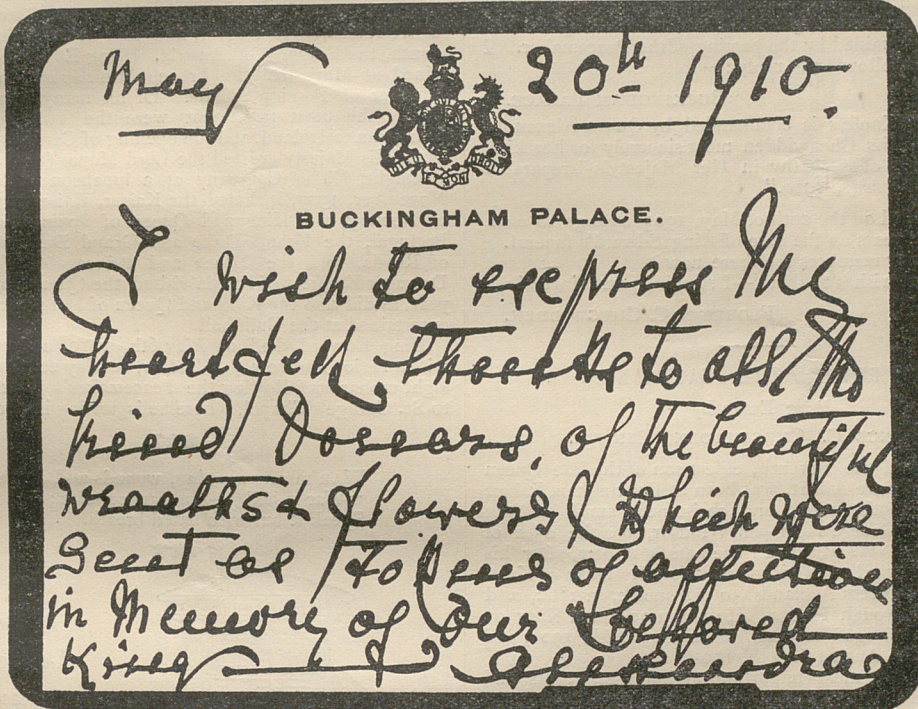 May 20th 1910.
DIEU ET MON DROIT
BUCKINGHAM PALACE.
I wish to express My
heartfelt thanks to all the
kind Donors, of the beautiful
wreaths & flowers which were
Sent as tokens of affection
in Memory of our beloved
King Alexandra